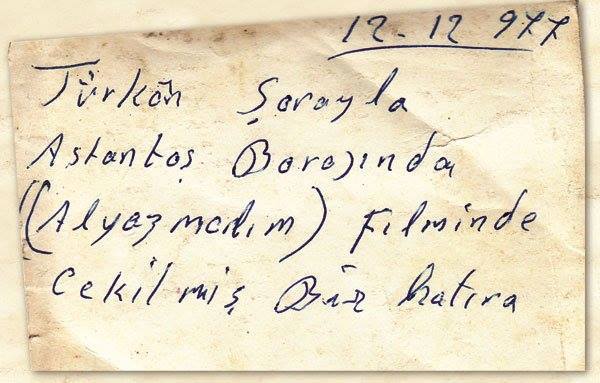 12-12 977
Türkân Şorayla
Aslantaş Barajında
(Alyazmalım) Filminde
Cekilmiş Bir hatıra